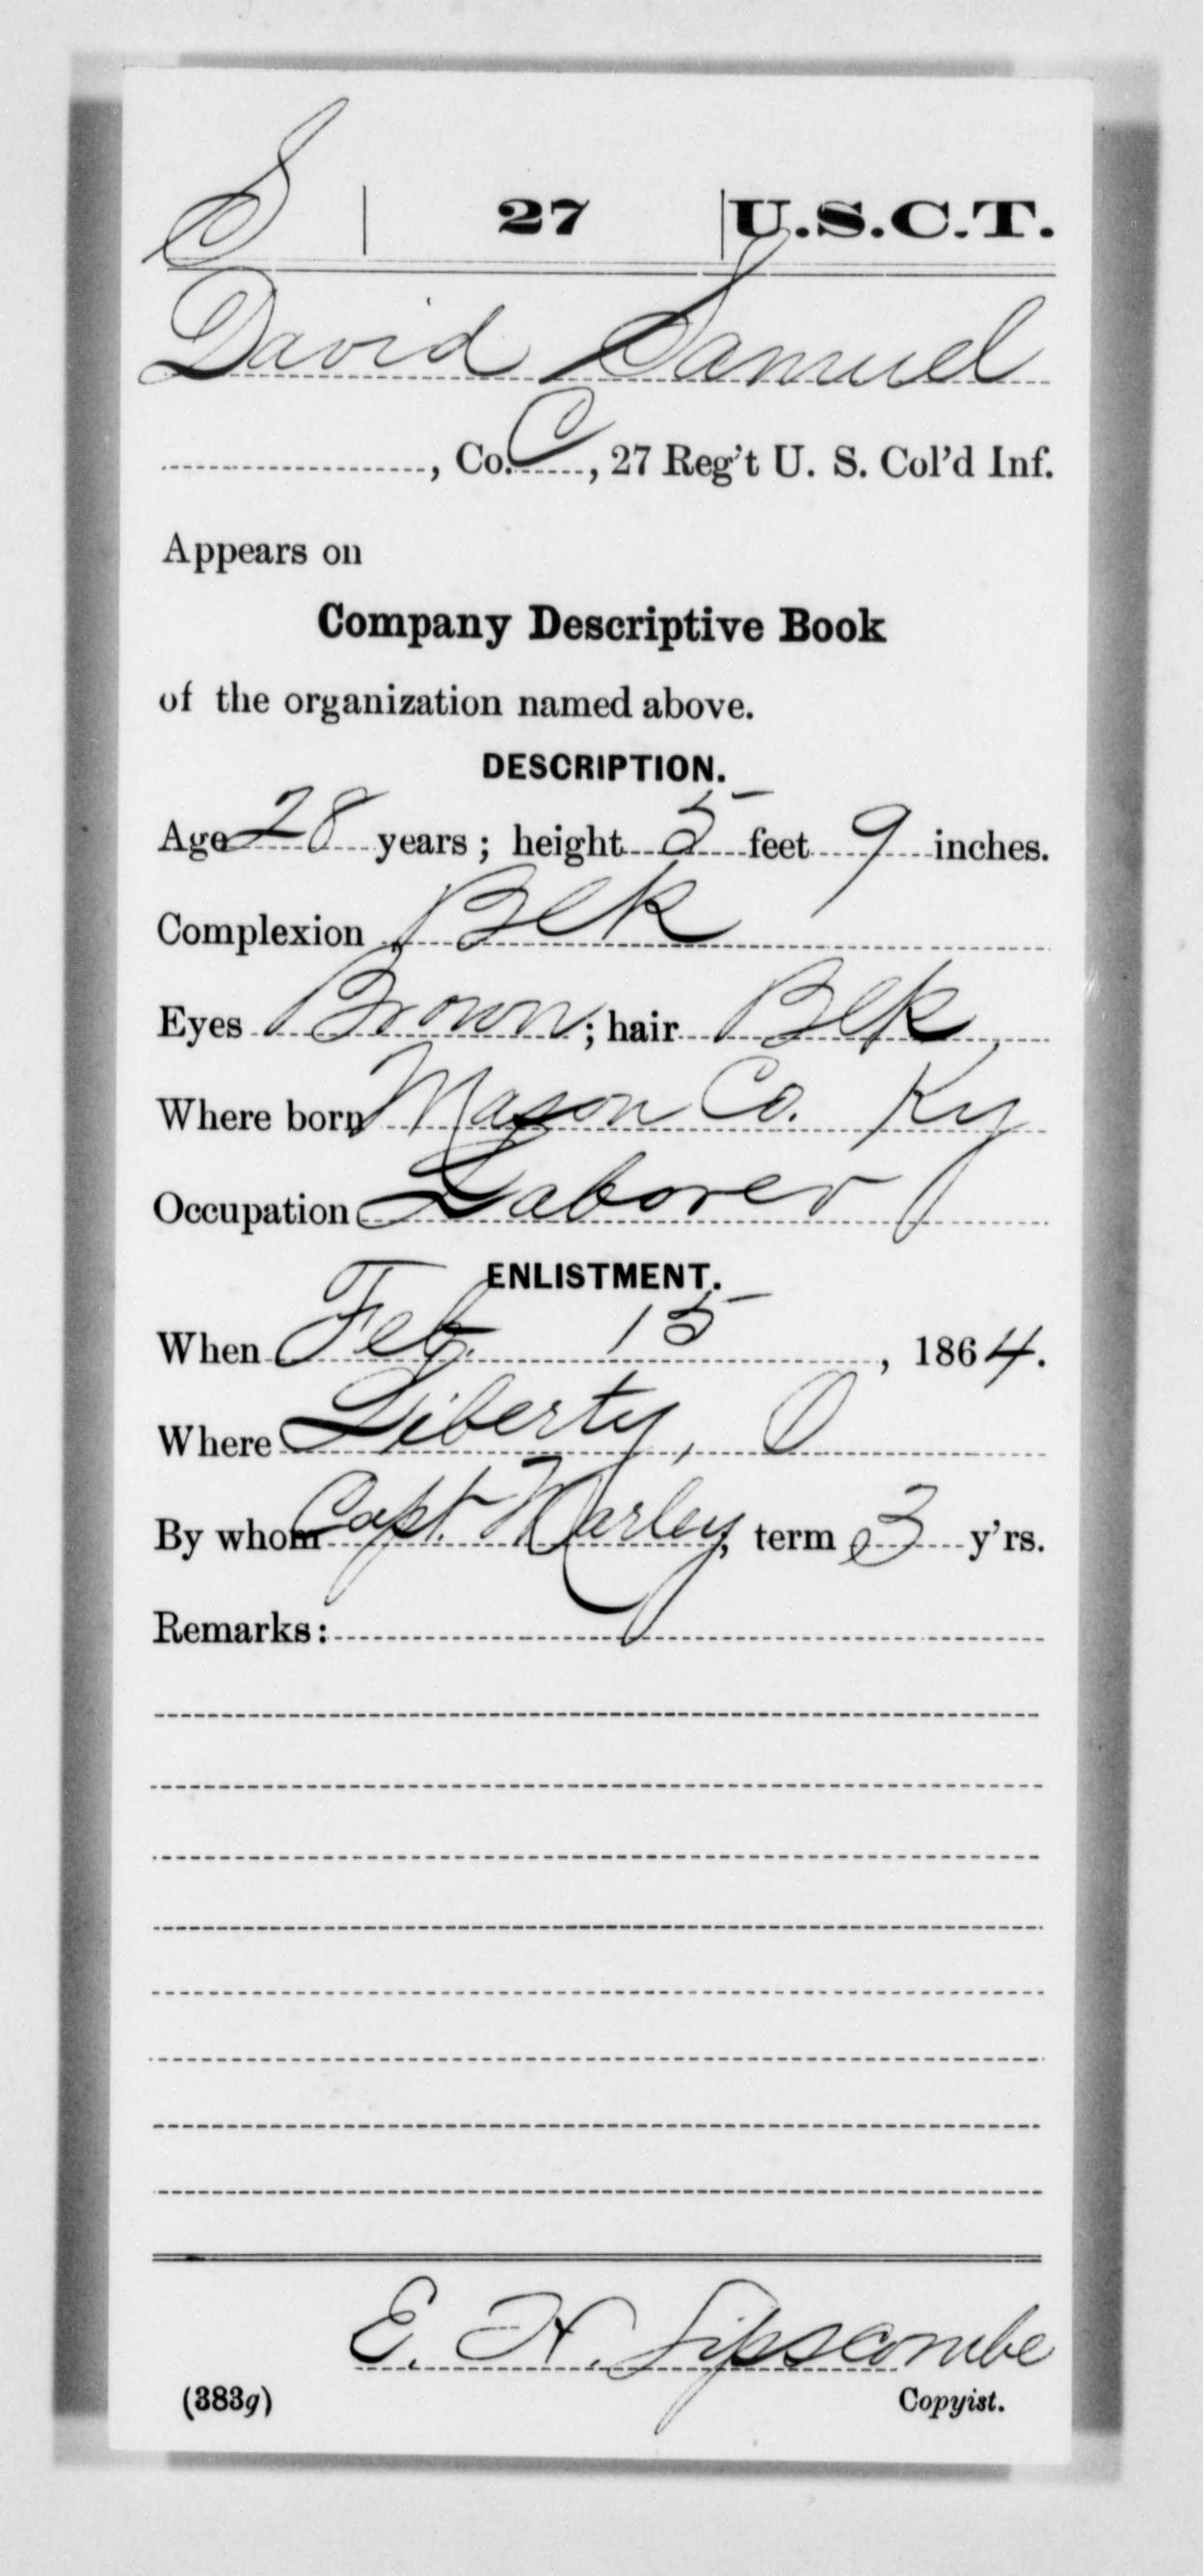 S | 27 | U.S.C.T.
David Samuel
, Co. C, 27 Reg't U. S. Col'd Inf.
Appears on
Company Descriptive Book
of the organization named above.
DESCRIPTION.
Age 28 years; height 5 feet 9 inches.
Complexion Blk
Eyes Brown; hair Blk
Where born Mason Co. Ky
Occupation Laborer
ENLISTMENT.
When Feb. 15, 1864.
Where Liberty, O
By whom Capt. Marley, term 3 y'rs.
Remarks:
E. H. Lipscombe
(383g) Copyist.